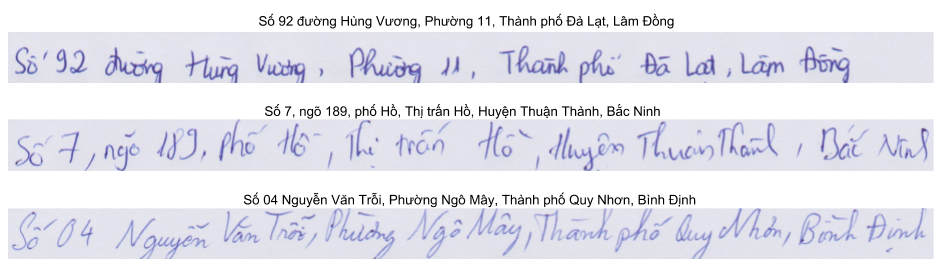 Số 92 đường Hùng Vương, Phường 11, Thành phố Đà Lạt, Lâm Đồng
Số 92 đường Hùng Vương, Phường 11, Thành phố Đà Lạt, Lâm Đồng
Số 7, ngõ 189, phố Hồ, Thị trấn Hồ, Huyện Thuận Thành, Bắc Ninh
Số 7, ngõ 189, phố Hồ, Thị trấn Hồ, Huyện Thuận Thành, Bắc Ninh
Số 04 Nguyễn Văn Trỗi, Phường Ngô Mây, Thành phố Quy Nhơn, Bình Định
Số 04 Nguyễn Văn Trỗi, Phường Ngô Mây, Thành phố Quy Nhơn, Bình Định